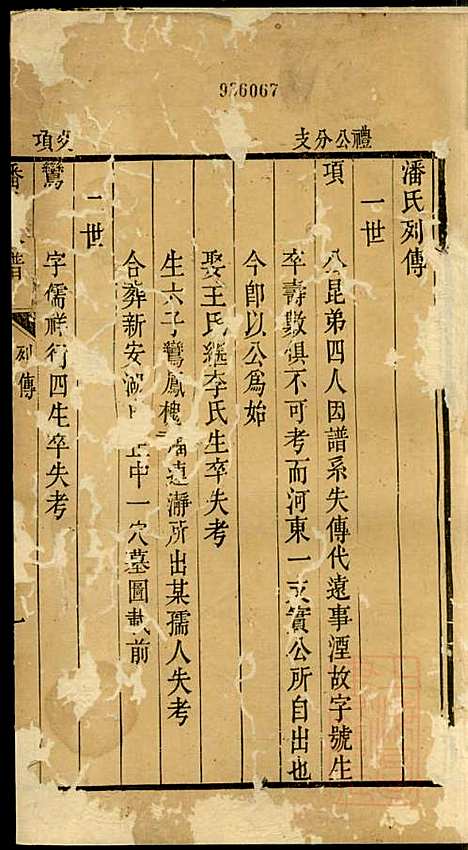 936067
禮公分支
潘氏列傳
一世
項
公昆弟四人因譜系失傳代遠事湮故字號生
卒壽數俱不可考而河東一支實公所自出也
今卽以公為始
娶王氏繼李氏生卒失考
生六子鸞鳳槐 遠瀞所出某孺人失考
合葬新安 正中一穴墓圖載前
二世
項
鸞
字儒祥行四生卒失考
潘 譜
列傳